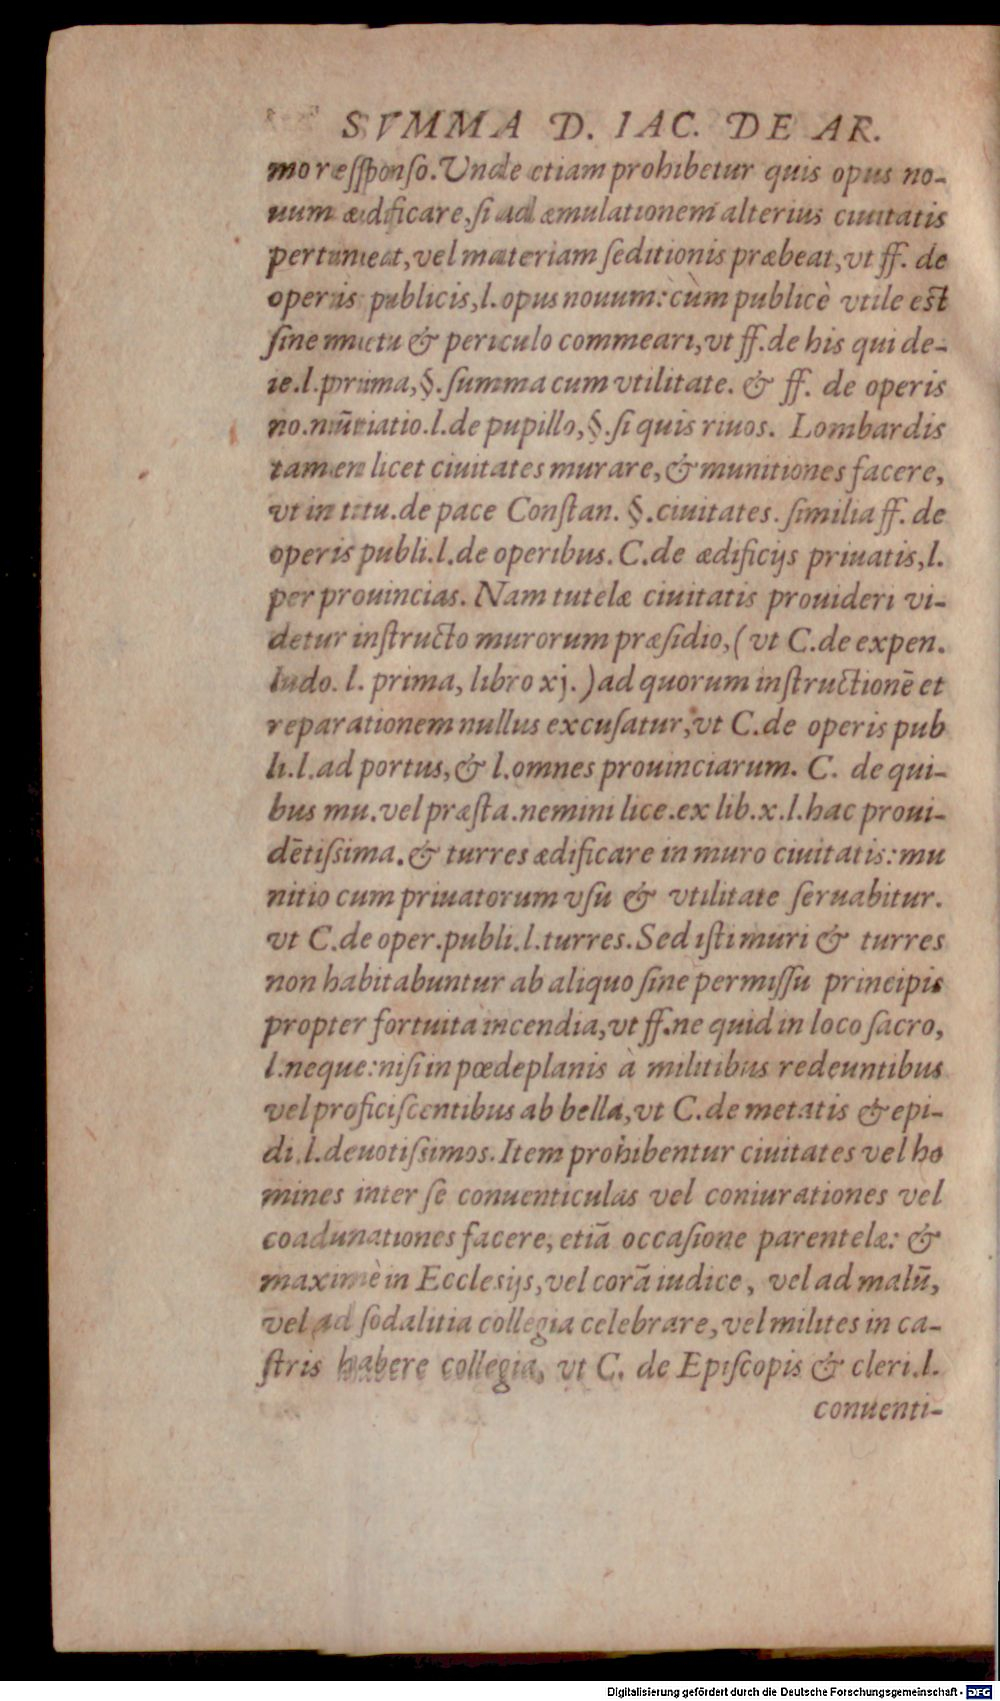 SVMMA D. IAC. DE AR.
mo reſponſo. Unde etiam prohibetur quis opus no-
uum ædificare, ſi ad æmulationem alterius ciuitatis
pertineat, vel materiam ſeditionis præbeat, vt ff. de
operis publicis, l. opus nouum: cùm publicè vtile eſt
ſine metu & periculo commeari, vt ff. de his qui de-
ie. l. prima, §. ſumma cum vtilitate. & ff. de operis
no. nũtiatio. l. de pupillo, §. ſi quis riuos. Lombardis
tamen licet ciuitates murare, & munitiones facere,
vt in titu. de pace Conſtan. §. ciuitates. ſimilia ff. de
operis publi. l. de operibus. C. de ædificijs priuatis, l.
per prouincias. Nam tutelæ ciuitatis prouideri vi-
detur inſtructo murorum præſidio, (vt C. de expen.
ludo. l. prima, libro xj.) ad quorum inſtructionẽ et
reparationem nullus excuſatur, vt C. de operis pub
li. l. ad portus, & l. omnes prouinciarum. C. de qui-
bus mu. vel præſta. nemini lice. ex lib. x. l. hac proui-
dẽtiſsima. & turres ædificare in muro ciuitatis: mu
nitio cum priuatorum vſu & vtilitate ſeruabitur.
vt C. de oper. publi. l. turres. Sed iſti muri & turres
non habitabuntur ab aliquo ſine permiſſu principis
propter fortuita incendia, vt ff. ne quid in loco ſacro,
l. neque: niſi in pœdeplanis à militibus redeuntibus
vel proficiſcentibus ab bella, vt C. de metatis & epi-
di. l. deuotiſsimos. Item prohibentur ciuitates vel ho
mines inter ſe conuenticulas vel coniurationes vel
coadunationes facere, etiã occaſione parentelæ: &
maximè in Eccleſijs, vel corã iudice, vel ad malũ,
vel ad ſodalitia collegia celebrare, vel milites in ca-
ſtris habere collegia, vt C. de Epiſcopis & cleri. l.
conuenti-
Digitalisierung gefördert durch die Deutsche Forschungsgemeinschaft - DFG